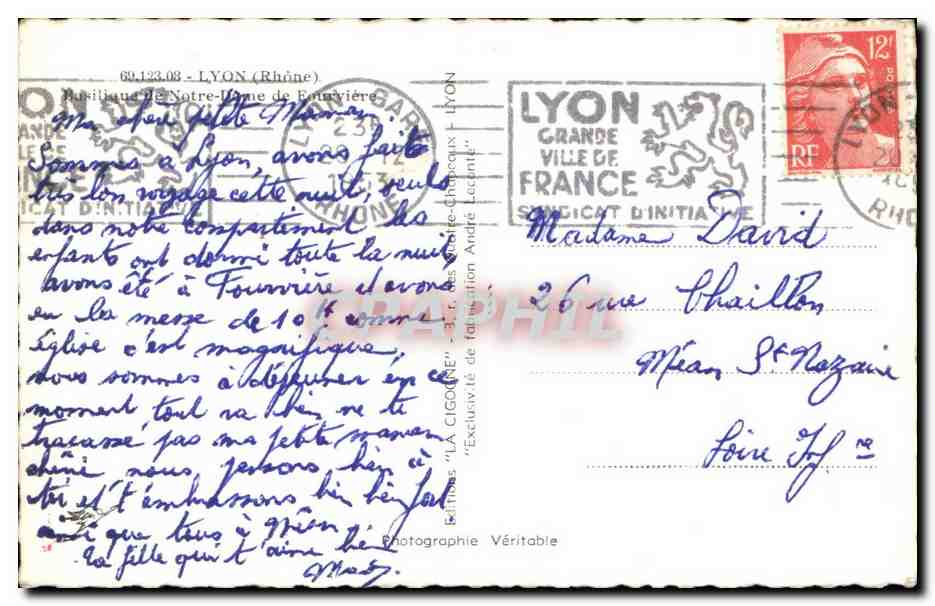 69.123.08 - LYON (Rhône)
Basilique de Notre-Dame de Fourvière
Ma chère petite Maman
Sommes à Lyon, avons faits
très bon voyage cette nuit, seuls
dans notre compartiment les
enfants ont dormi toute la nuit,
avons été à Fourvière et avons
eu la messe de 10h comme
église c'est magnifique,
nous sommes à déjeuner en ce
moment tout va bien ne te
tracasse pas ma petite maman
chérie nous pensons bien à
toi et t'embrassons bien bien fort
ainsi que tous à Méan.
ta fille qui t'aime bien
Mady
Editions "LA CIGOGNE" - 3, r. des Quatre-Chapeaux - LYON
"Exclusivité de fabrication André Leconte"
Photographie Véritable
LYON GARE
23H
12
RHÔNE
LYON
GRANDE
VILLE DE
FRANCE
SYNDICAT D'INITIATIVE
12F
RF
Madame David
26 rue Chaillon
Méan St Nazaire
Loire Infre
CPAPHIL